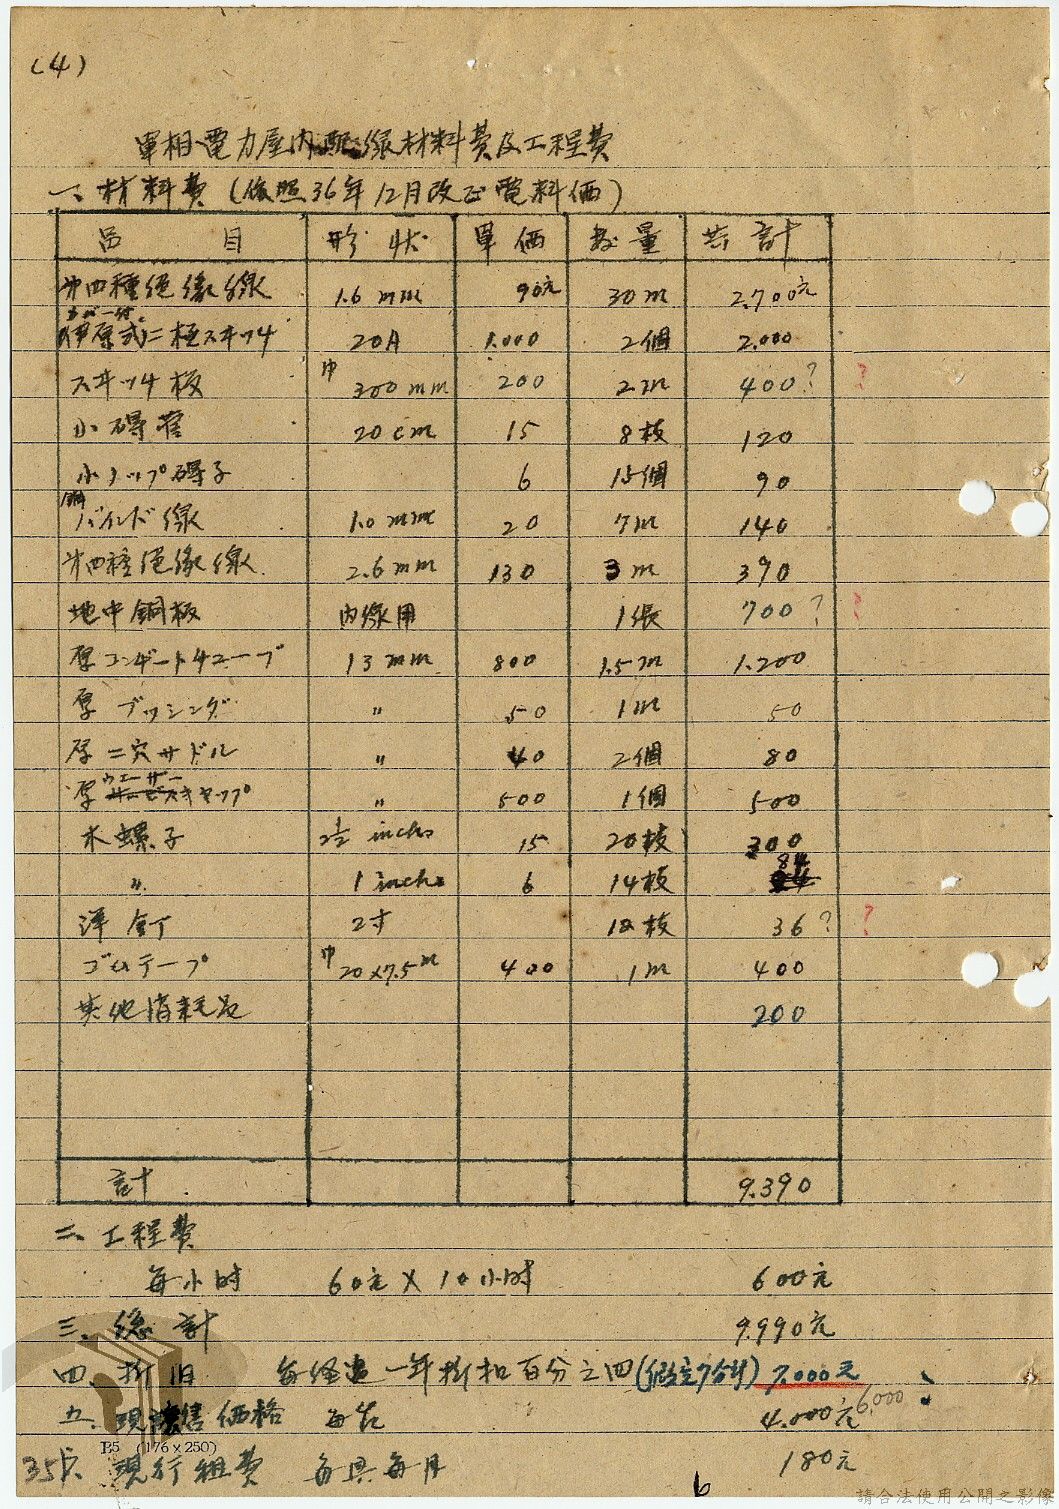 (4)
單相電力屋內配線材料費及工程費
一、材料費(依照36年12月改正電料価)
品目 形狀 單価 數量 共計
才四種絕緣線 1.6 mm 90元 30m 2.700元
カバー付
伊原式二極スヰッチ 20A 1.000 2個 2.000
スヰッチ板 巾300mm 200 2m 400?
小碍管 20cm 15 8枝 120
小ノップ碍子 6 15個 90
銅バインド線 1.0 mm 20 7m 140
才四種絕緣線 2.6 mm 130 3m 390
地中銅板 內線用 1張 700?
厚コンヂートチューブ 13mm 800 1.5m 1.200
厚ブッシング 〃 50 1m 50
厚二穴サドル 〃 40 2個 80
厚ウエーザーキャップ 〃 500 1個 500
木螺子 2½ inchs 15 20枝 300
〃 1 inchs 6 14枝 84
洋釘 2寸 12枝 36?
ゴムテープ 巾20×7.5m 400 1m 400
其他消耗品 200
計 9.390
二、工程費
每小时 60元×10小时 600元
三、總計 9.990元
四、折旧 每經過一年折扣百分之四(假定7合計) 7.000元
五、現售価格 每 4.000元 6,000
B5 (176×250)
現行租費 每具每月 180元
6
請合法使用公開之影像